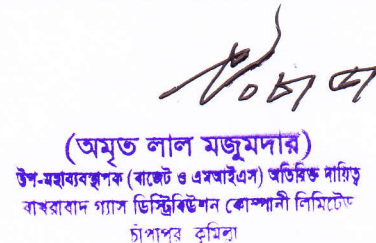 (অমৃত লাল মজুমদার)
উপ-মহাব্যবস্থাপক (বাজেট ও এমআইএস) অতিরিক্ত দায়িত্ব
বাখরাবাদ গ্যাস ডিস্ট্রিবিউশন কোম্পানী লিমিটেড
চাঁপাপুর কুমিল্লা